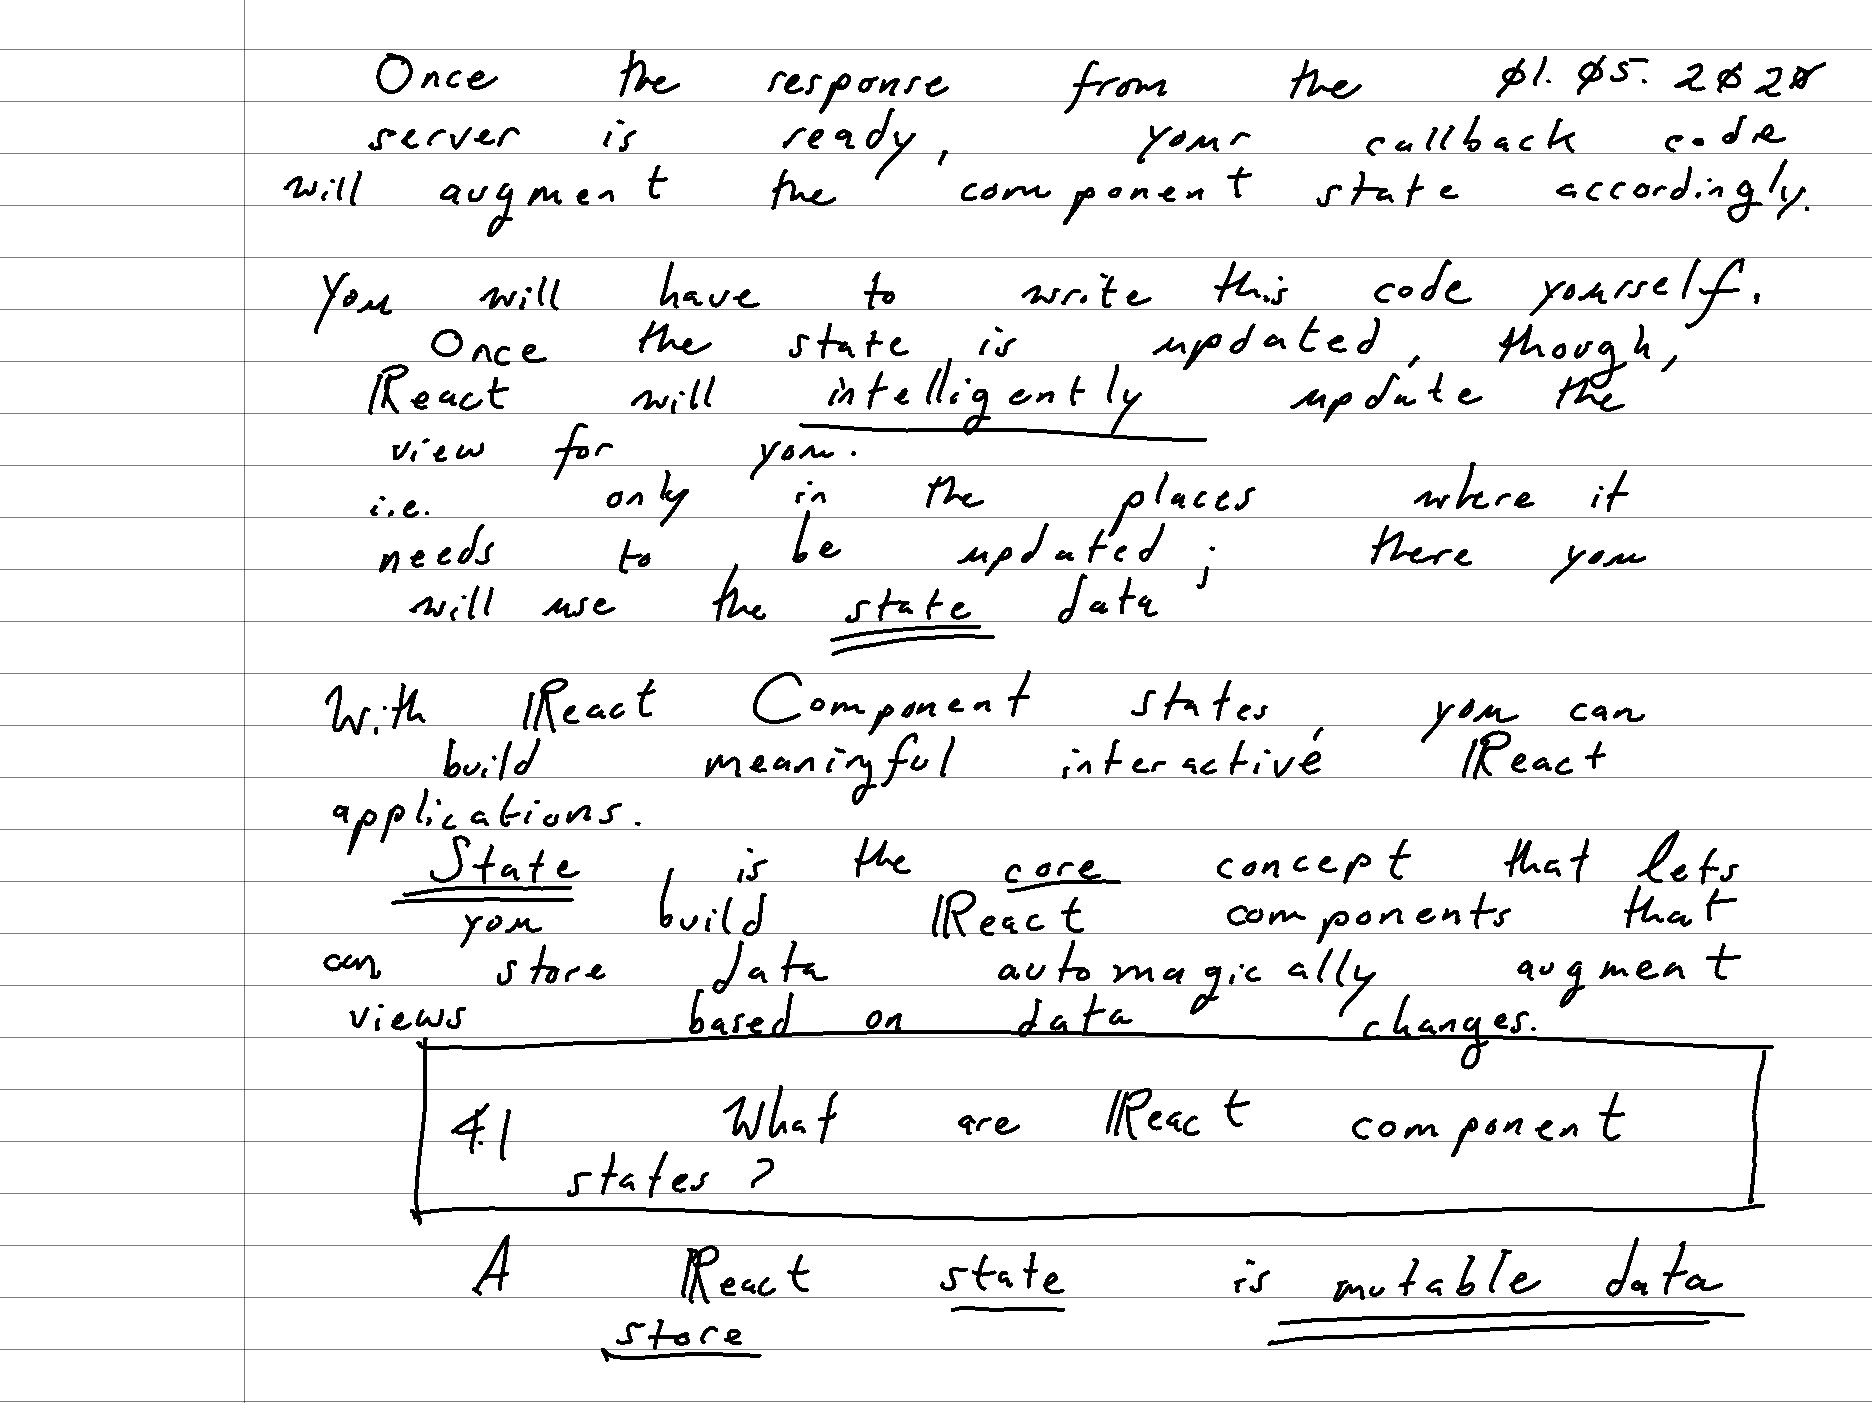 Once the response from the 01.05.2020
server is ready, your callback code
will augment the component state accordingly.
You will have to write this code yourself.
Once the state is updated, though,
React will intelligently update the
view for you.
i.e. only in the places where it
needs to be updated; there you
will use the state data
With React Component states, you can
build meaningful interactive React
applications.
State is the core concept that lets
you build React components that
can store data automagically augment
views based on data changes.
4.1 What are React component
states?
A React state is mutable data
store